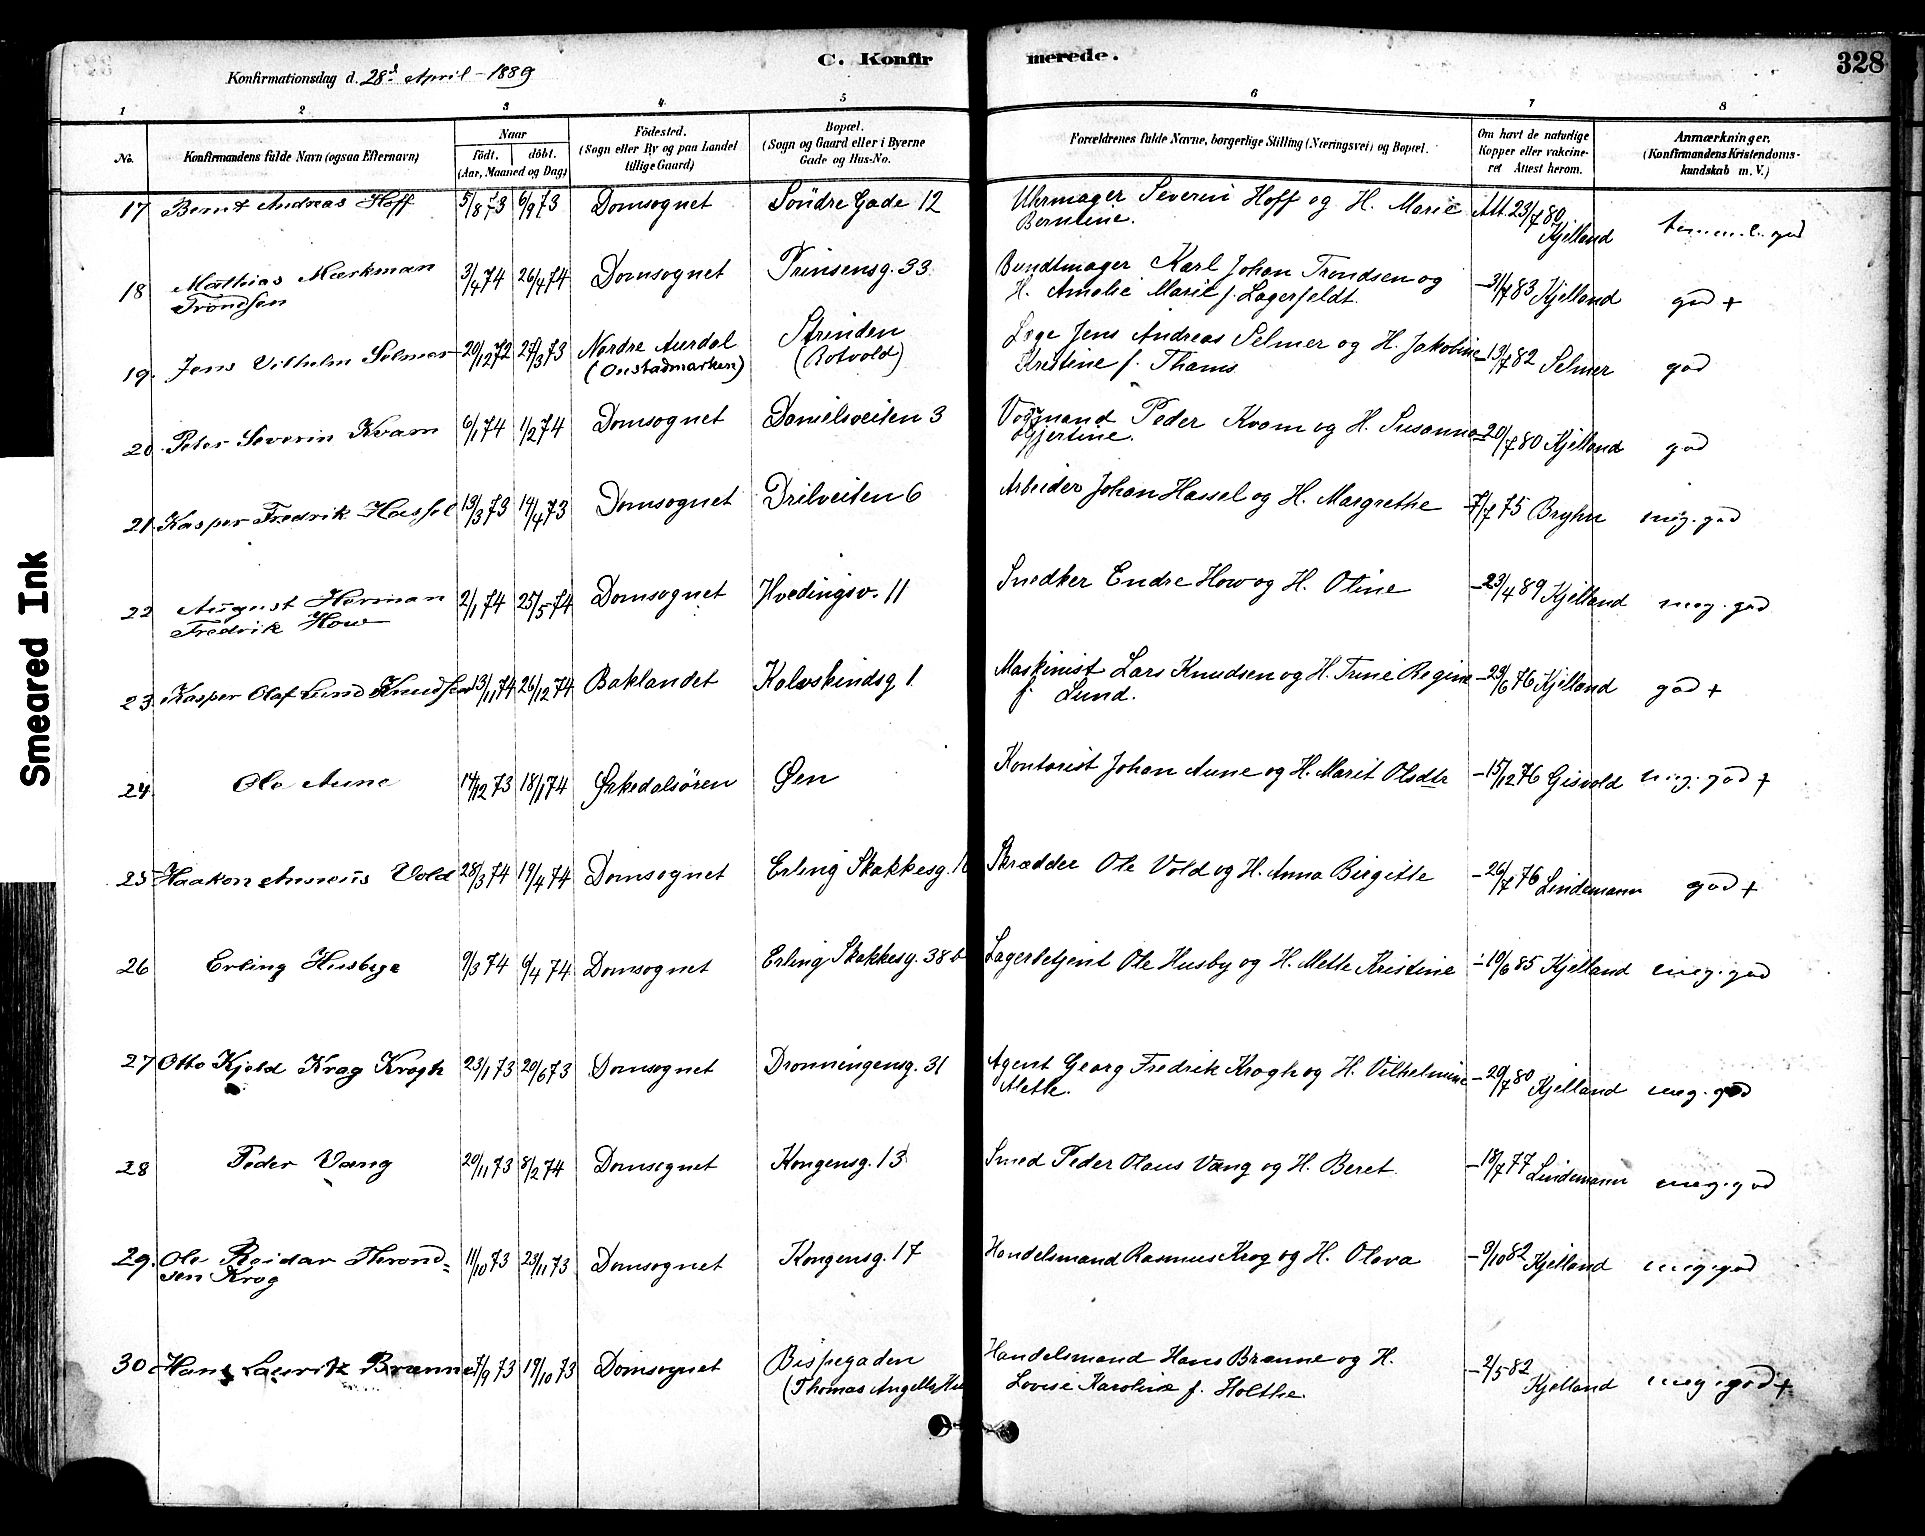 Smeared Ink
C. Konfirmerede. 328
Konfirmationsdag d. 28d April - 1889
1 2 3 4 5 6 7 8
No. Konfirmandens fulde Navn (ogsaa Efternavn) Naar Födt. döbt. (Aar, Maaned og Dag) Födested. (Sogn eller By og paa Landet tillige Gaard) Bopæl. (Sogn og Gaard eller i Byerne Gade og Hus-No. Forældrenes fulde Navne, borgerlige Stilling (Næringsvei) og Bopæl. Om havt de naturlige Kopper eller vakcineret Attest herom. Anmærkninger. (Konfirmandens Kristendomskundskab m. V.)
17 Bernt Andreas Hoff 5/8 73 6/9 73 Domsognet Söndre Gade 12 Uhrmager Severin Hoff og H. Marie Att. 23/7 80
Berntine. Kjelland god
18 Mathias Markman 3/4 74 26/4 74 Domsognet Prinsensg. 33 Bundtmager Karl Johan Trondsen og
Trondsen H. Amalie Marie f. Lagerfeldt. - 31/7 83 Kjelland god +
19. Jens Vilhelm Selmer 20/12 72 27/3 73 Nordre Aurdal Strinden Læge Jens Andreas Selmer og H. Jakobine
(Onstadmarken) (Rotvold) Kristine f. Thams - 13/7 82 Selmer god
20. Peter Severin Kvam 6/1 74 1/2 74 Domsognet Danielsveiten 3 Vognmand Peder Kvam og H. Susanna
Gjertine. - 20/7 80 Kjelland god
21. Kasper Fredrik Hassel 13/3 73 14/4 73 Domsognet Drilveiten 6 Arbeider Johan Hassel og H. Margrethe - 7/7 75 Bryhn meg. god
22 August Herman 2/1 74 25/5 74 Domsognet Hvedingsv. 11 Snedker Endre How og H. Oline - 23/4 89 Kjelland meg. god
Fredrik How
23. Kasper Olaf Lund Knudsen 13/11 74 26/12 74 Baklandet Kalvskindsg 1 Maskinist Lars Knudsen og H. Trine Regine
f. Lund. - 23/6 76 Kjelland god +
24. Ole Aune 14/12 73 18/1 74 Ørkedalsören Øen Kontorist Johan Aune og H. Marit Olsdtr - 15/12 76 Gisvold meg. god +
25 Haakon Vold 28/3 74 19/4 74 Domsognet Erling Skakkesg. Skrædder Ole Vold og H. Anna Birgitte - 26/7 76 Lindemann god +
26 Erling Husbye 9/3 74 6/4 74 Domsognet Erling Skakkesg. 38 b Lagerbetjent Ole Husby og H. Mette Kristine - 10/6 85 Kjelland meg. god
27 Otto Kjeld Krag Krogh 23/1 73 20/6 73 Domsognet Dronningensg. 31 Agent Georg Fredrik Krogh og H. Vilhelmine
Alette. - 20/7 80 Kjelland meg. god
28 Peder Vang 20/11 73 8/2 74 Domsognet Kongensg. 13 Smed Peder Olaus Vang og H. Beret - 18/7 77 Lindemann meg. god
29. Ole Reidar Therond= 11/10 73 23/11 73 Domsognet Kongensg. 17 Handelsmand Rasmus Krog og H. Olava - 9/10 82 Kjelland meg. god
sen Krog
30 Hans Laurits Brænne 7/9 73 19/10 73 Domsognet Bispegaden Handelsmand Hans Brænne og H.
(Thomas Angells Hus Lovise Karoline f. Holthe. - 2/5 82 Kjelland meg. god +